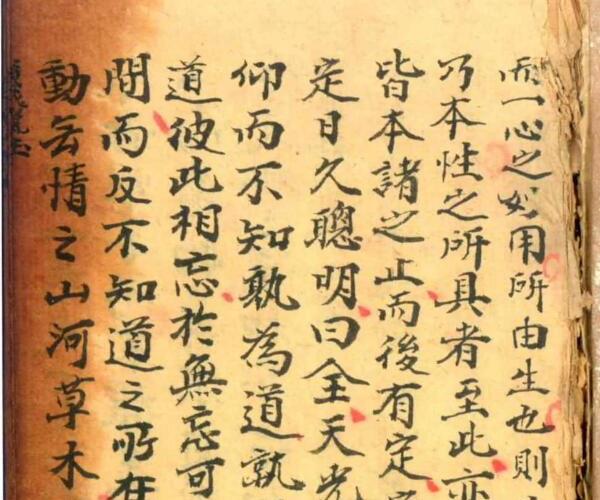 而一心之妙用所由生也則
乃本性之所具者至此亦
皆本諸之止而後有定
定日久聰明曰全天光
仰而不知孰為道孰
道彼此相忘於無忘可
間而反不知道之所在
動無情之山河草木